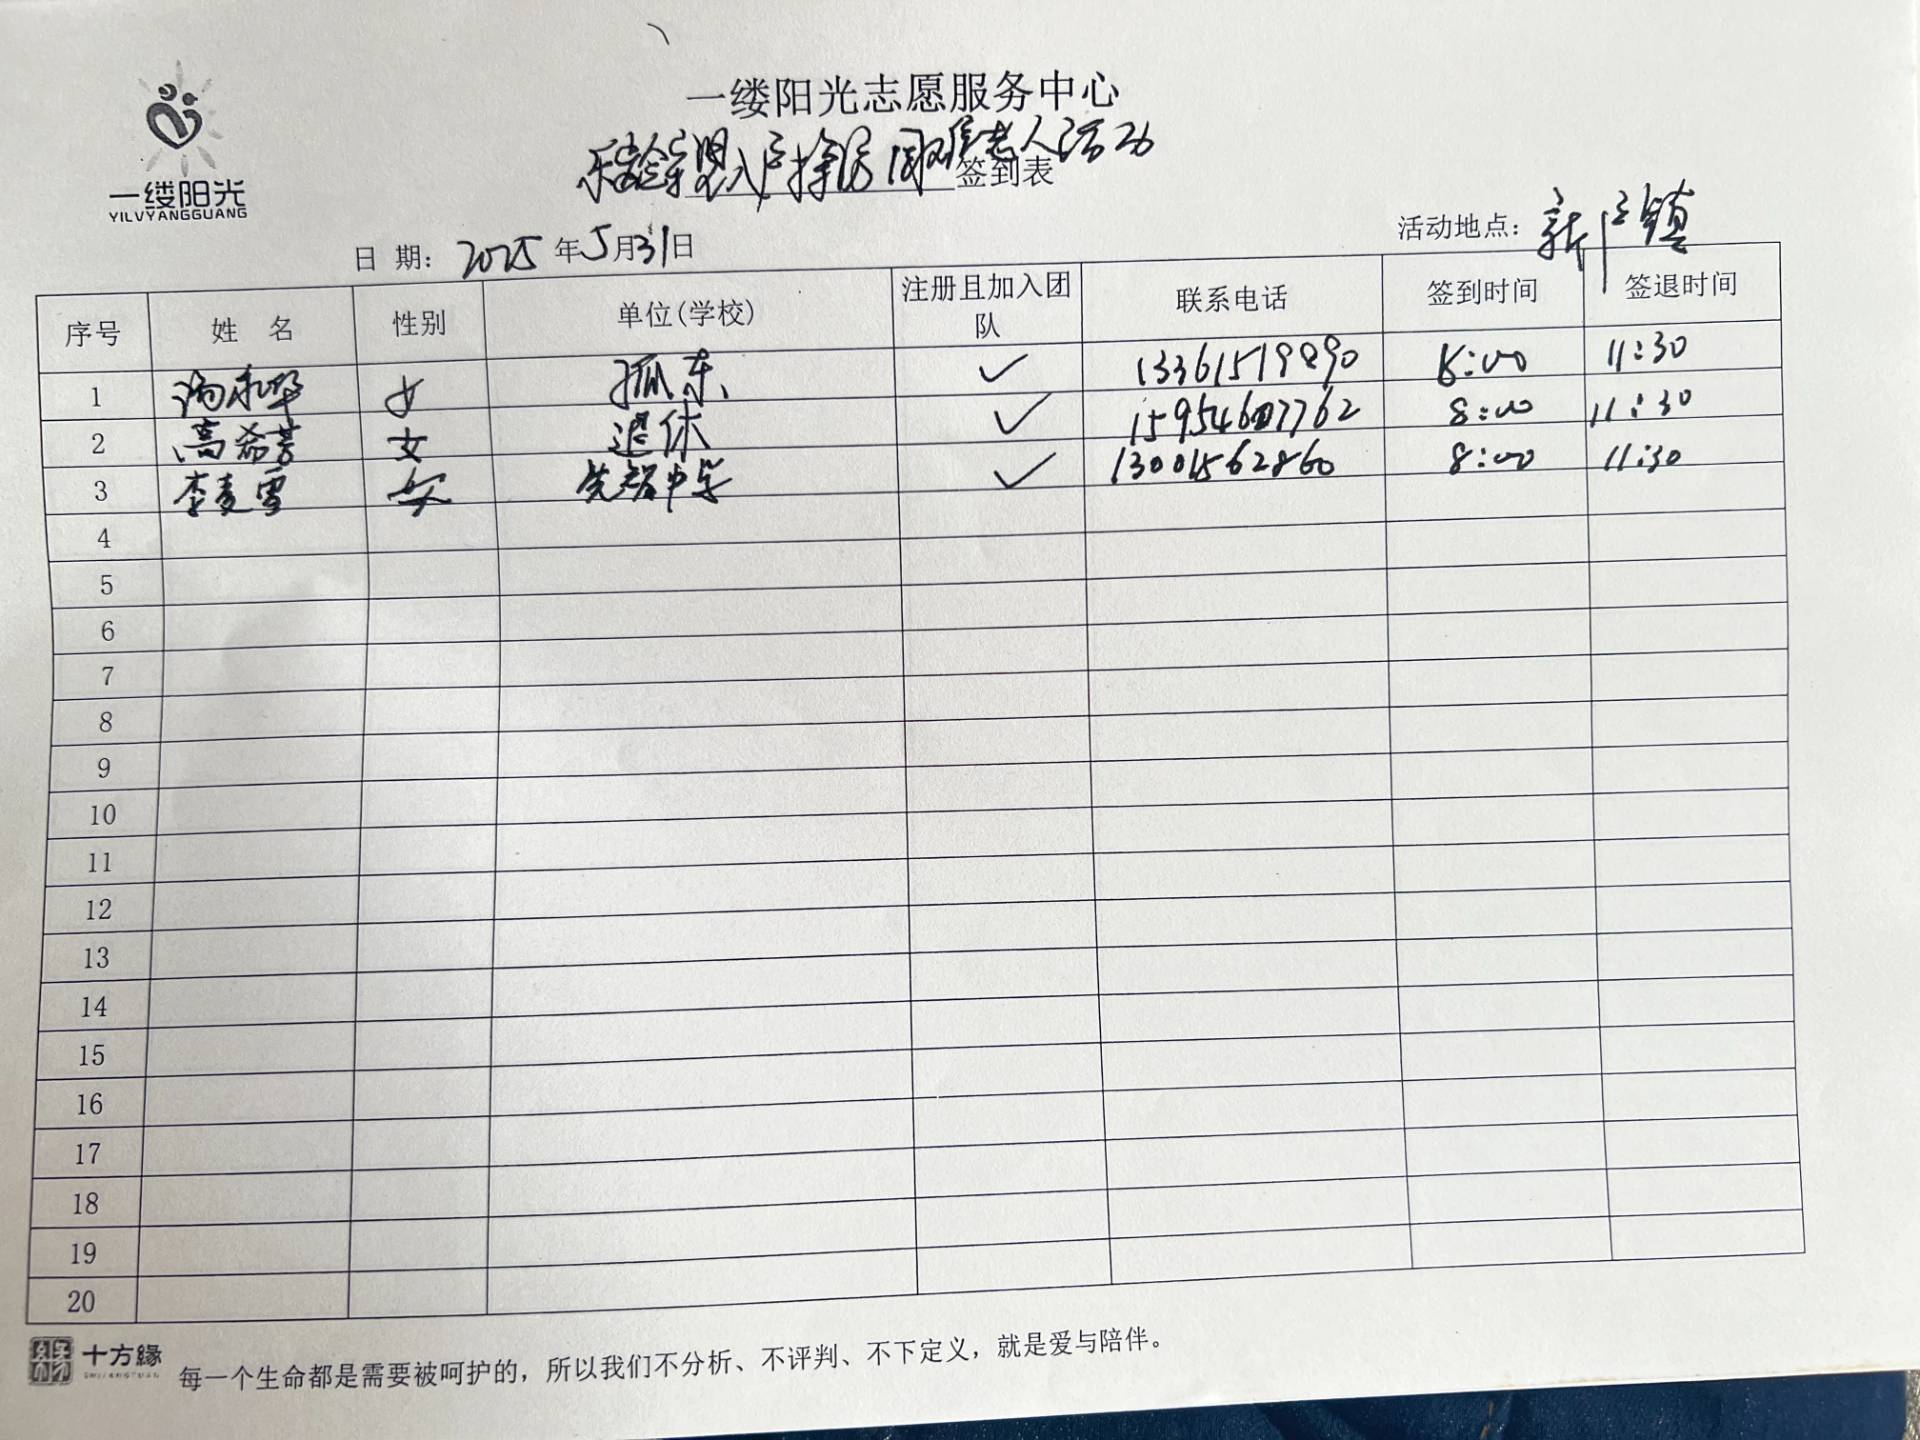 一缕阳光志愿服务中心
乐龄家盟入户探访困难老人活动
签到表
一缕阳光
YILVYANGGUANG
日 期: 2025 年 5 月 31 日
活动地点: 新户镇
序号 姓 名 性别 单位(学校) 注册且加入团队 联系电话 签到时间 签退时间
1 女 孤东 ✓ 13361519890 8:00 11:30
2 高希芳 女 退休 ✓ 15954607762 8:00 11:30
3 李麦雪 女 先智中学 ✓ 13001562860 8:00 11:30
4
5
6
7
8
9
10
11
12
13
14
15
16
17
18
19
20
十方缘
每一个生命都是需要被呵护的，所以我们不分析、不评判、不下定义，就是爱与陪伴。